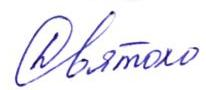 Святохо